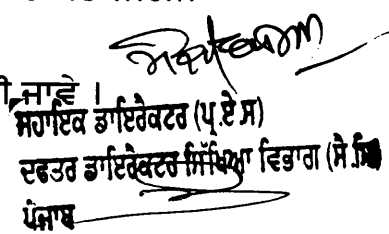 ਜਾਵੇ ।
ਸਹਾਇਕ ਡਾਇਰੈਕਟਰ (ਪ੍ਰ.ਏ.ਸ)
ਦਫਤਰ ਡਾਇਰੈਕਟਰ ਸਿੱਖਿਆ ਵਿਭਾਗ (ਸੈ.ਸਿ)
ਪੰਜਾਬ